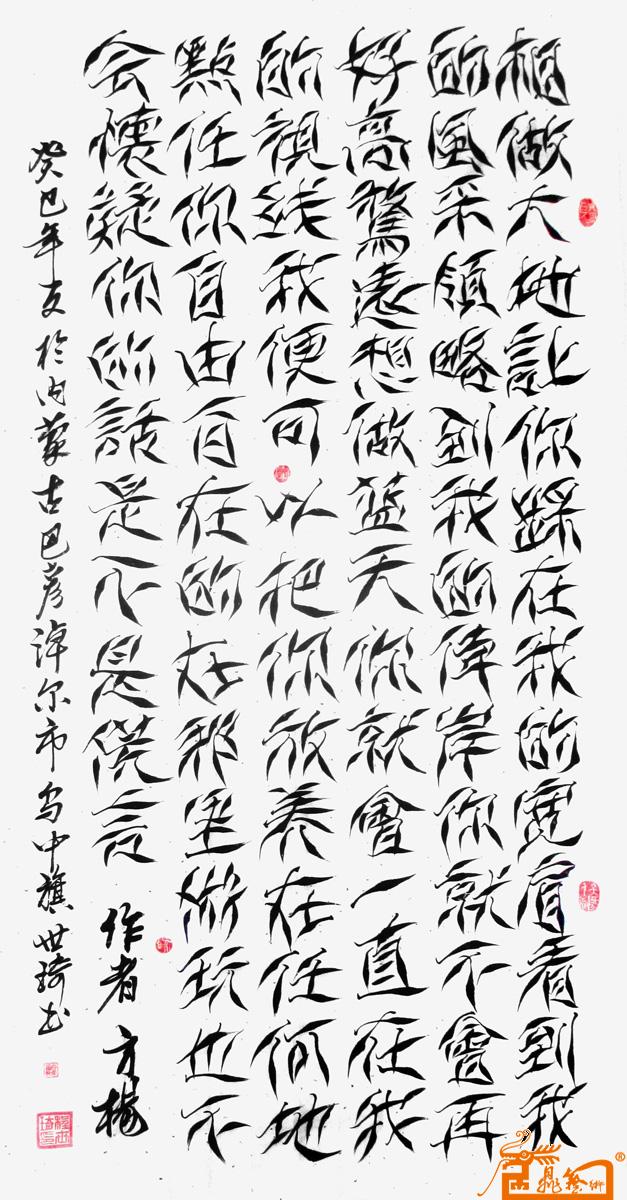 相做大地让你踩在我的宽肩看到我
的風采領略到我的偉岸你就不會再
好高騖遠想做蓝天你就會一直在我
的視线我便可以把你放养在任何地
點任你自由自在的在那里做玩也不
会懷疑你的話是不是谎言 作者 方楊
癸巳年夏於内蒙古巴彦淖尔市乌中旗世琦书